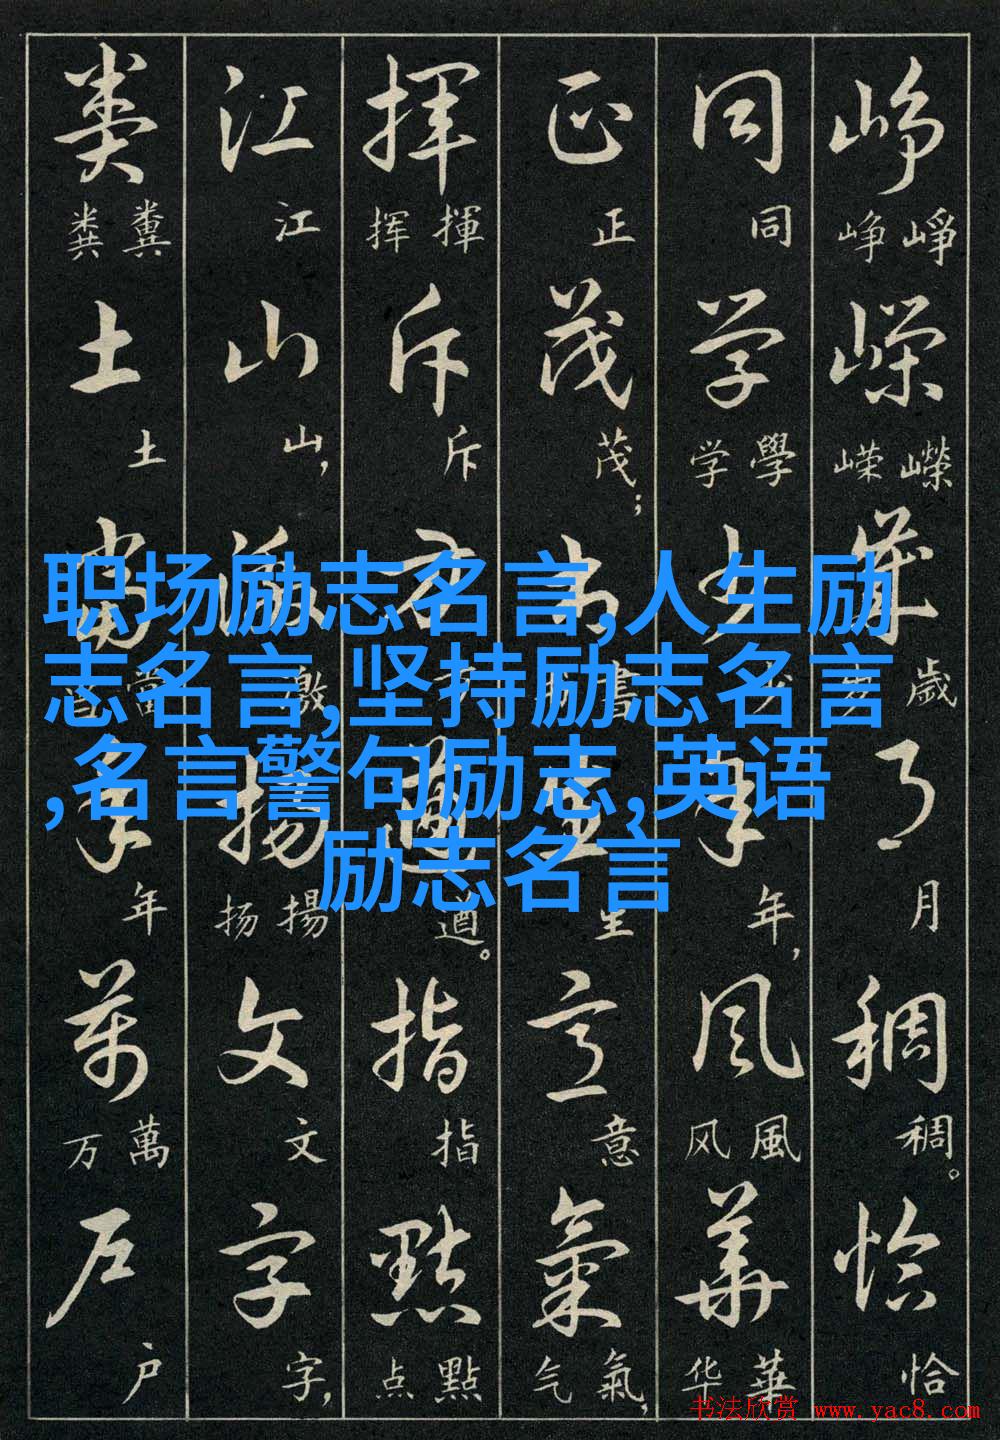 职场励志名言,人生励
志名言,坚持励志名言
,名言警句励志,英语
励志名言
峥嵘岁月稠恰
峥崢嵘嶸岁歲月稠。恰
同学少年风华
同学學少年,风風华華
正茂书生意氣
正茂;书書生意气氣,
挥斥方遒指點
挥揮斥方遒。指点點
江山激扬文字
江山,激扬揚文字,
粪土当年万户
粪糞土当當年万萬户
书法欣赏 www.yac8.com